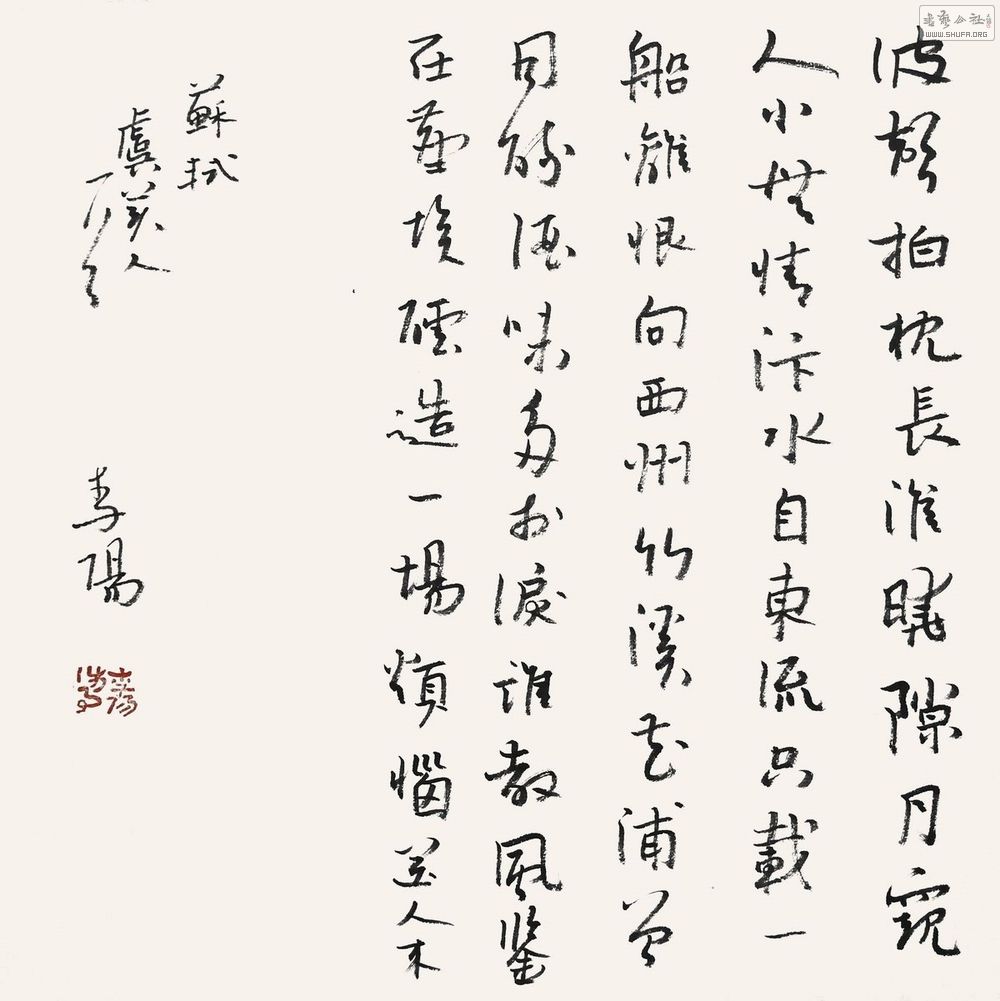 波聲拍枕長淮曉隙月窺
人小無情汴水自東流只載一
船離恨向西州竹溪花浦曾
同醉酒味多於淚誰教風鑒
在塵埃醞造一場煩惱送人來
蘇軾
虞美人
一首
李陽
書藝公社
WWW.SHUFA.ORG